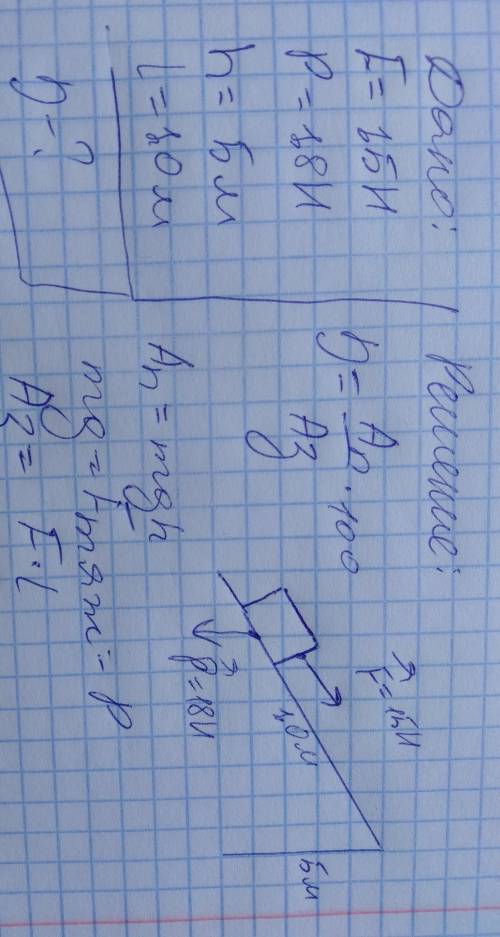 Дано:
F = 15Н
P = 18Н
h = 5м
l = 10м
η - ?
Решение:
η = Aп/Aз · 100
Aп = mgh
mg = Fтяж = P
Aз = F·l
F = 15Н
10м
5м
P = 18Н